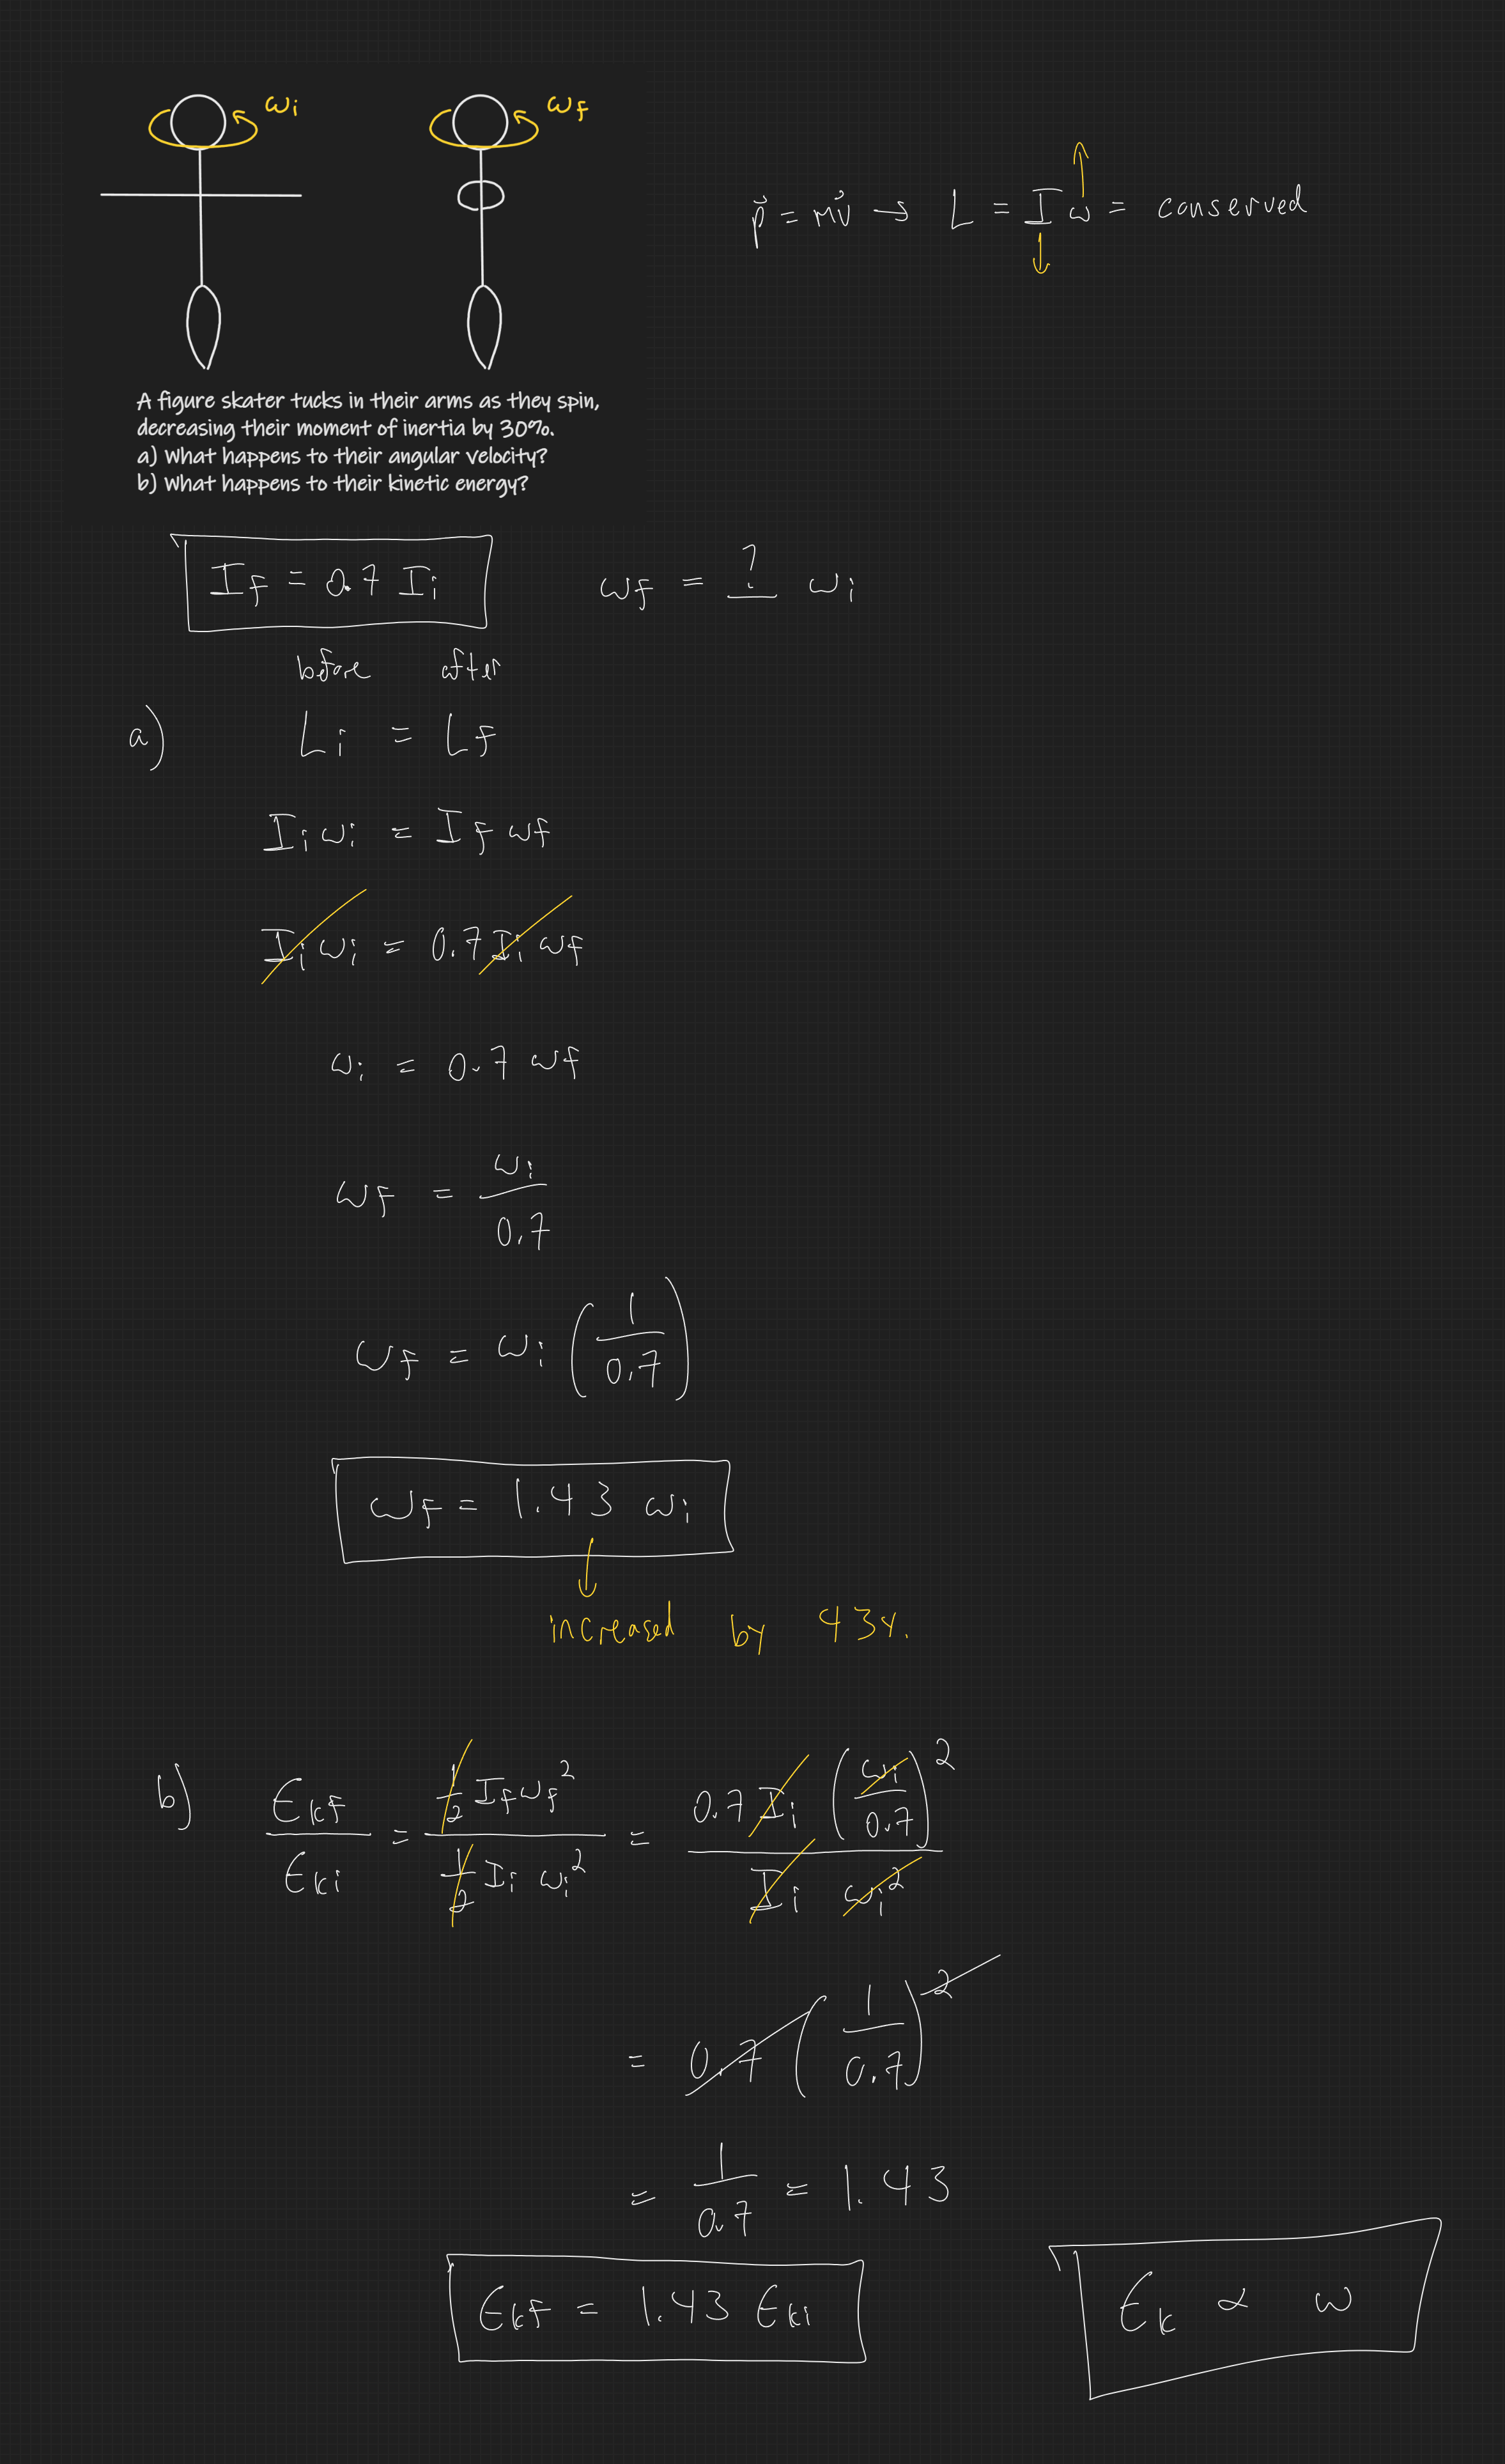 ωi
ωf
p⃗ = mv⃗ → L = I ω = conserved
A figure skater tucks in their arms as they spin,
decreasing their moment of inertia by 30%.
a) What happens to their angular velocity?
b) What happens to their kinetic energy?
If = 0.7 Ii
ωf = ? ωi
before after
a) Li = Lf
Ii ωi = If ωf
Ii ωi = 0.7 Ii ωf
ωi = 0.7 ωf
ωf = ωi / 0.7
ωf = ωi (1 / 0.7)
ωf = 1.43 ωi
increased by 43%.
b) Ekf / Eki = ½ If ωf² / ½ Ii ωi² = 0.7 Ii (ωi / 0.7)² / Ii ωi²
= 0.7 (1 / 0.7)²
= 1 / 0.7 = 1.43
Ekf = 1.43 Eki
Ek ∝ ω